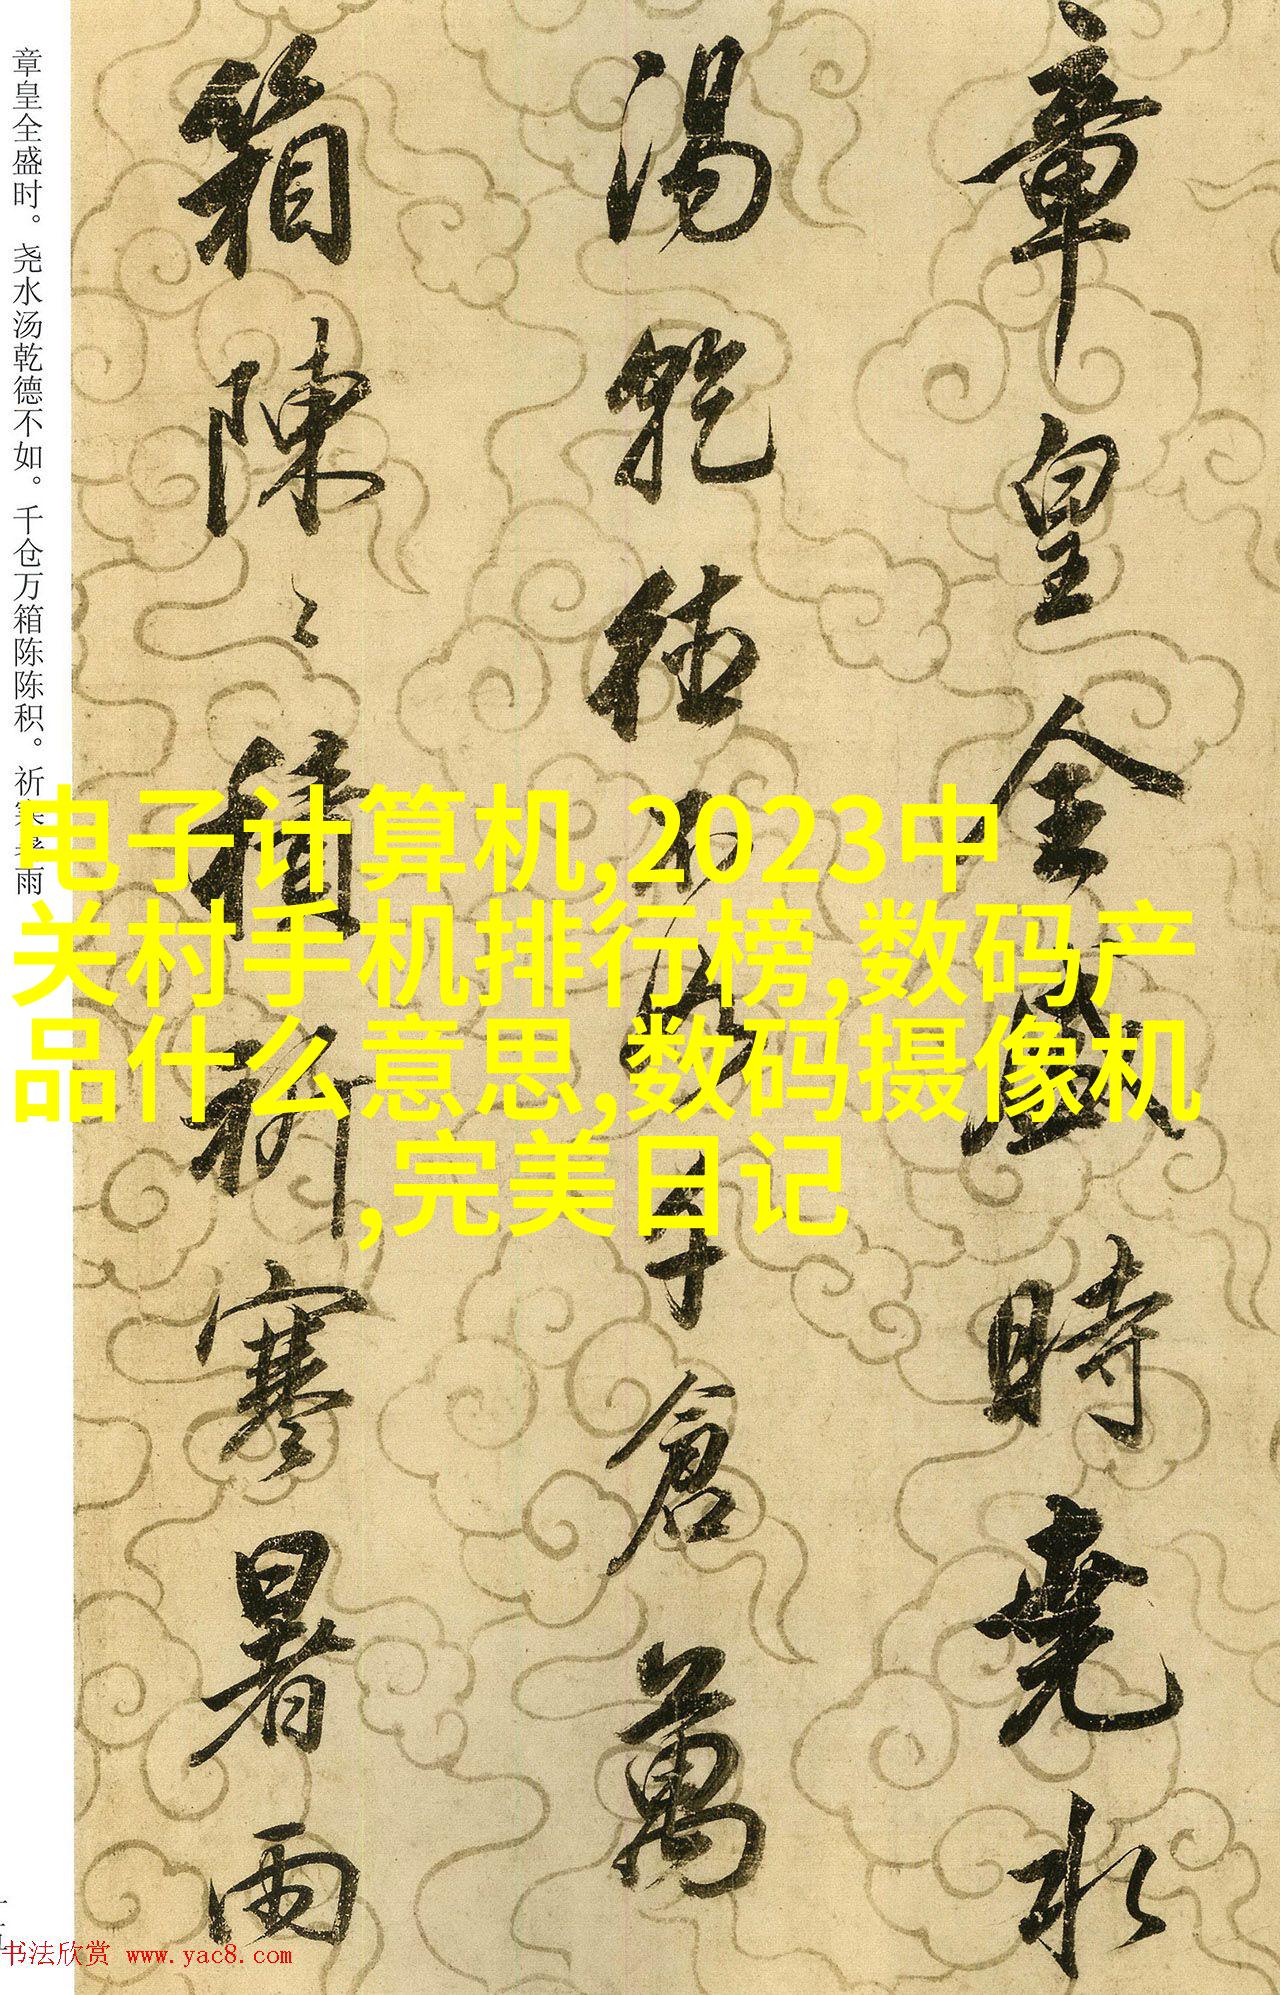 章皇全盛時堯水
湯乾德不如千倉萬
箱陳〻積祈寒暑雨
章皇全盛时。尧水汤乾德不如。千仓万箱陈陈积。祈寒暑雨
电子计算机,2023中
关村手机排行榜,数码产
品什么意思,数码摄像机
,完美日记
书法欣赏 www.yac8.com